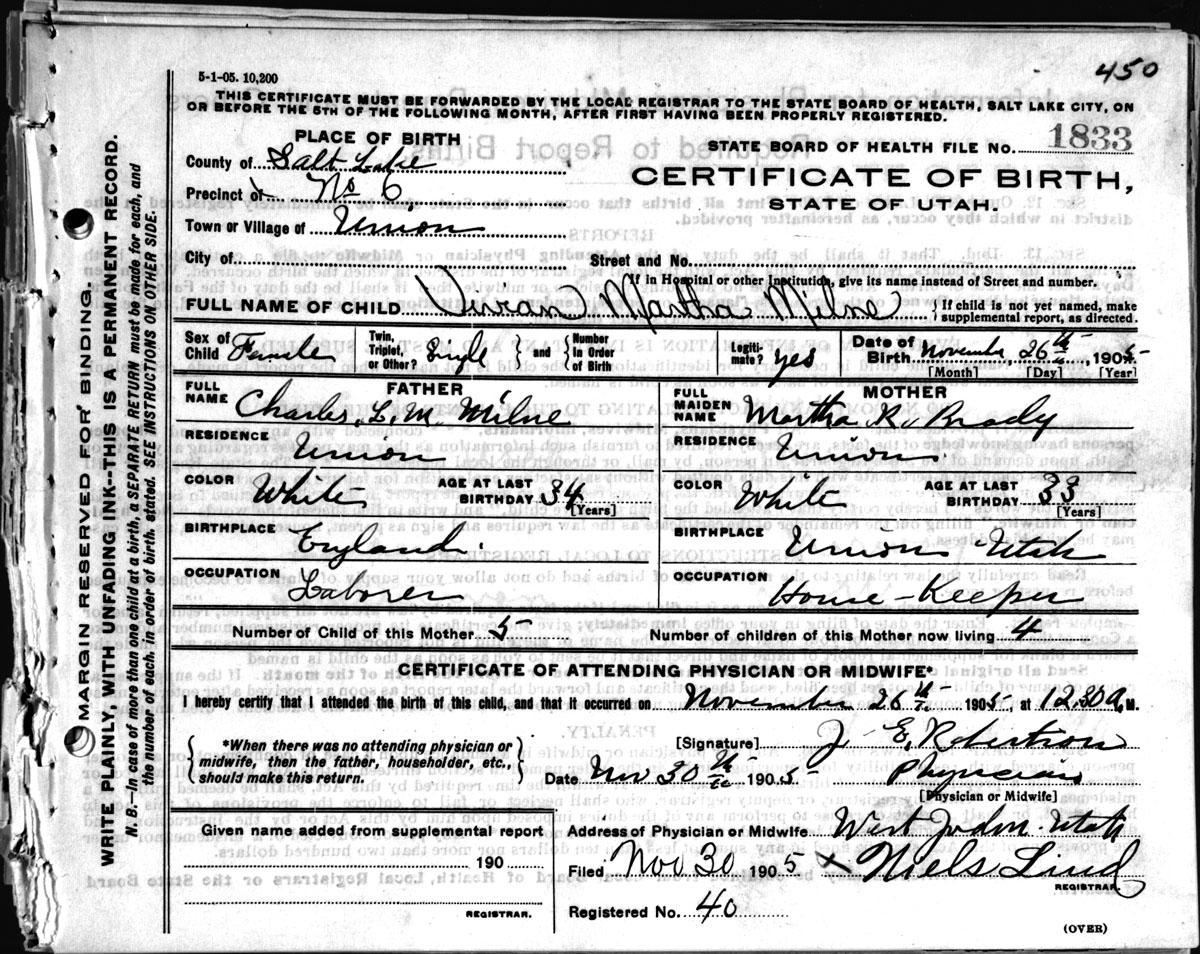 450
5-1-05. 10,200
THIS CERTIFICATE MUST BE FORWARDED BY THE LOCAL REGISTRAR TO THE STATE BOARD OF HEALTH, SALT LAKE CITY, ON
OR BEFORE THE 5TH OF THE FOLLOWING MONTH, AFTER FIRST HAVING BEEN PROPERLY REGISTERED.
PLACE OF BIRTH
STATE BOARD OF HEALTH FILE NO. 1833
County of Salt Lake
CERTIFICATE OF BIRTH,
Precinct of No 6,
STATE OF UTAH.
Town or Village of Union
City of Street and No.
If in Hospital or other Institution, give its name instead of Street and number.
FULL NAME OF CHILD Vivian Martha Milne { If child is not yet named, make supplemental report, as directed.
Sex of Child Female Twin, Triplet, or Other? Single { and } Number in Order of Birth Legitimate? yes Date of Birth November 26th, 1905
[Month] [Day] [Year]
FATHER MOTHER
FULL NAME Charles. L. M. Milne FULL MAIDEN NAME Martha R. Brady
RESIDENCE Union RESIDENCE Union
COLOR White AGE AT LAST BIRTHDAY 34 [Years] COLOR White AGE AT LAST BIRTHDAY 33 [Years]
BIRTHPLACE England. BIRTHPLACE Union Utah
OCCUPATION Laborer OCCUPATION House-Keeper
Number of Child of this Mother 5 Number of children of this Mother now living 4
CERTIFICATE OF ATTENDING PHYSICIAN OR MIDWIFE*
I hereby certify that I attended the birth of this child, and that it occurred on November 26th 1905, at 12.30 A. M.
{ *When there was no attending physician or midwife, then the father, householder, etc., should make this return. }
[Signature] J. E. Robertson
Date Nov 30th 1905 Physician
[Physician or Midwife]
Given name added from supplemental report
190
REGISTRAR.
Address of Physician or Midwife West Jordan Utah
Filed Nov 30 1905 x Niels Lind
REGISTRAR.
Registered No. 40
(OVER)
MARGIN RESERVED FOR BINDING.
WRITE PLAINLY, WITH UNFADING INK--THIS IS A PERMANENT RECORD.
N. B.—In case of more than one child at a birth, a SEPARATE RETURN must be made for each, and
the number of each, in order of birth, stated. SEE INSTRUCTIONS ON OTHER SIDE.